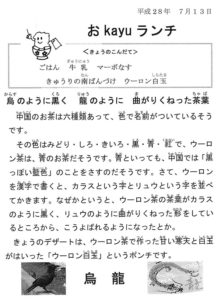 平成28年 7月13日
おkayuランチ
<きょうのこんだて>
ごはん 牛乳 マーボなす
きゅうりの南ばんづけ ウーロン白玉
烏のように黒く 龍のように 曲がりくねった茶葉
中国のお茶は六種類あって、色で名前がついているそうです。
その色はみどり・しろ・きいろ・黒・青・紅で、ウーロン茶は、青のお茶だそうです。青といっても、中国では「黒っぽい藍色」のことをさすのだそうです。さて、ウーロンを漢字で書くと、カラスという字とリュウという字を並べてかきます。なぜかというと、ウーロン茶の茶葉がカラスのように黒く、リュウのように曲がりくねった形をしているところから、こうよばれるようになったとか。
きょうのデザートは、ウーロン茶で作った甘い寒天と白玉がはいった「ウーロン白玉」というポンチです。
烏 龍